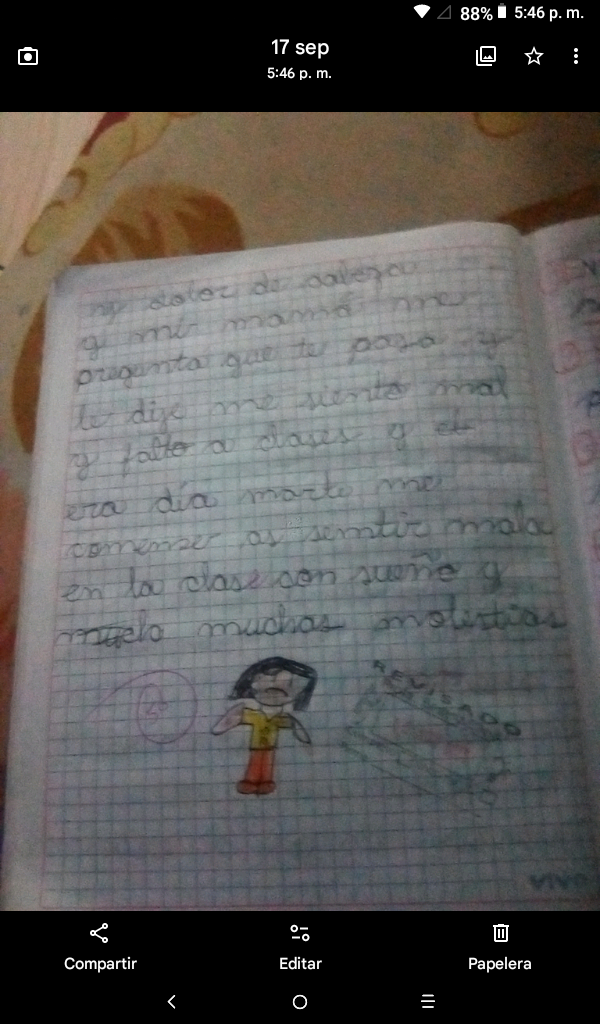 88% 5:46 p. m.
17 sep
5:46 p. m.
y dolor de cabeza
y mi mamá me
pregunta que te pasa y
le dije me siento mal
y falto a clases y el
era día marte me
comense as semtir mala
en la clase con sueño y
muchas molistias
REVISADO
Compartir
Editar
Papelera